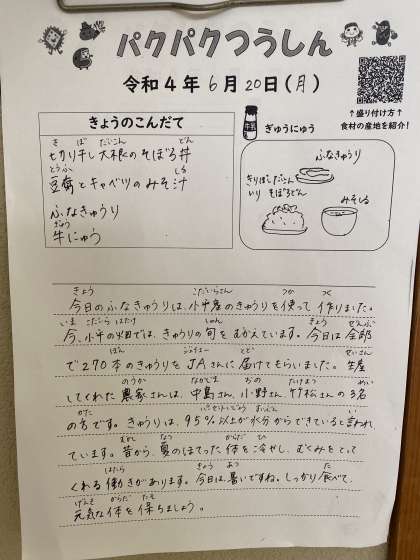 パクパクつうしん
令和4年6月20日(月)
↑盛り付け方↑
食材の産地を紹介!
きょうのこんだて
切り干し大根のそぼろ丼
豆腐とキャベツのみそ汁
ふなきゅうり
牛にゅう
ぎゅうにゅう
ふなきゅうり
きりぼしだいこん
いり そぼろどん
みそしる
今日のふなきゅうりは、小平産のきゅうりを使って作りました。
今、小平の畑では、きゅうりの旬をむかえています。今日は全部
で270本のきゅうりをJAさんに届けてもらいました。生産
してくれた農家さんは、中島さん、小野さん、竹松さんの3名
の方です。きゅうりは、95%以上が水分からできていると言われ
ています。昔から、夏のほてった体を冷やし、むくみをとって
くれる働きがあります。今日は暑いですね。しっかり食べて、
元気な体を保ちましょう。